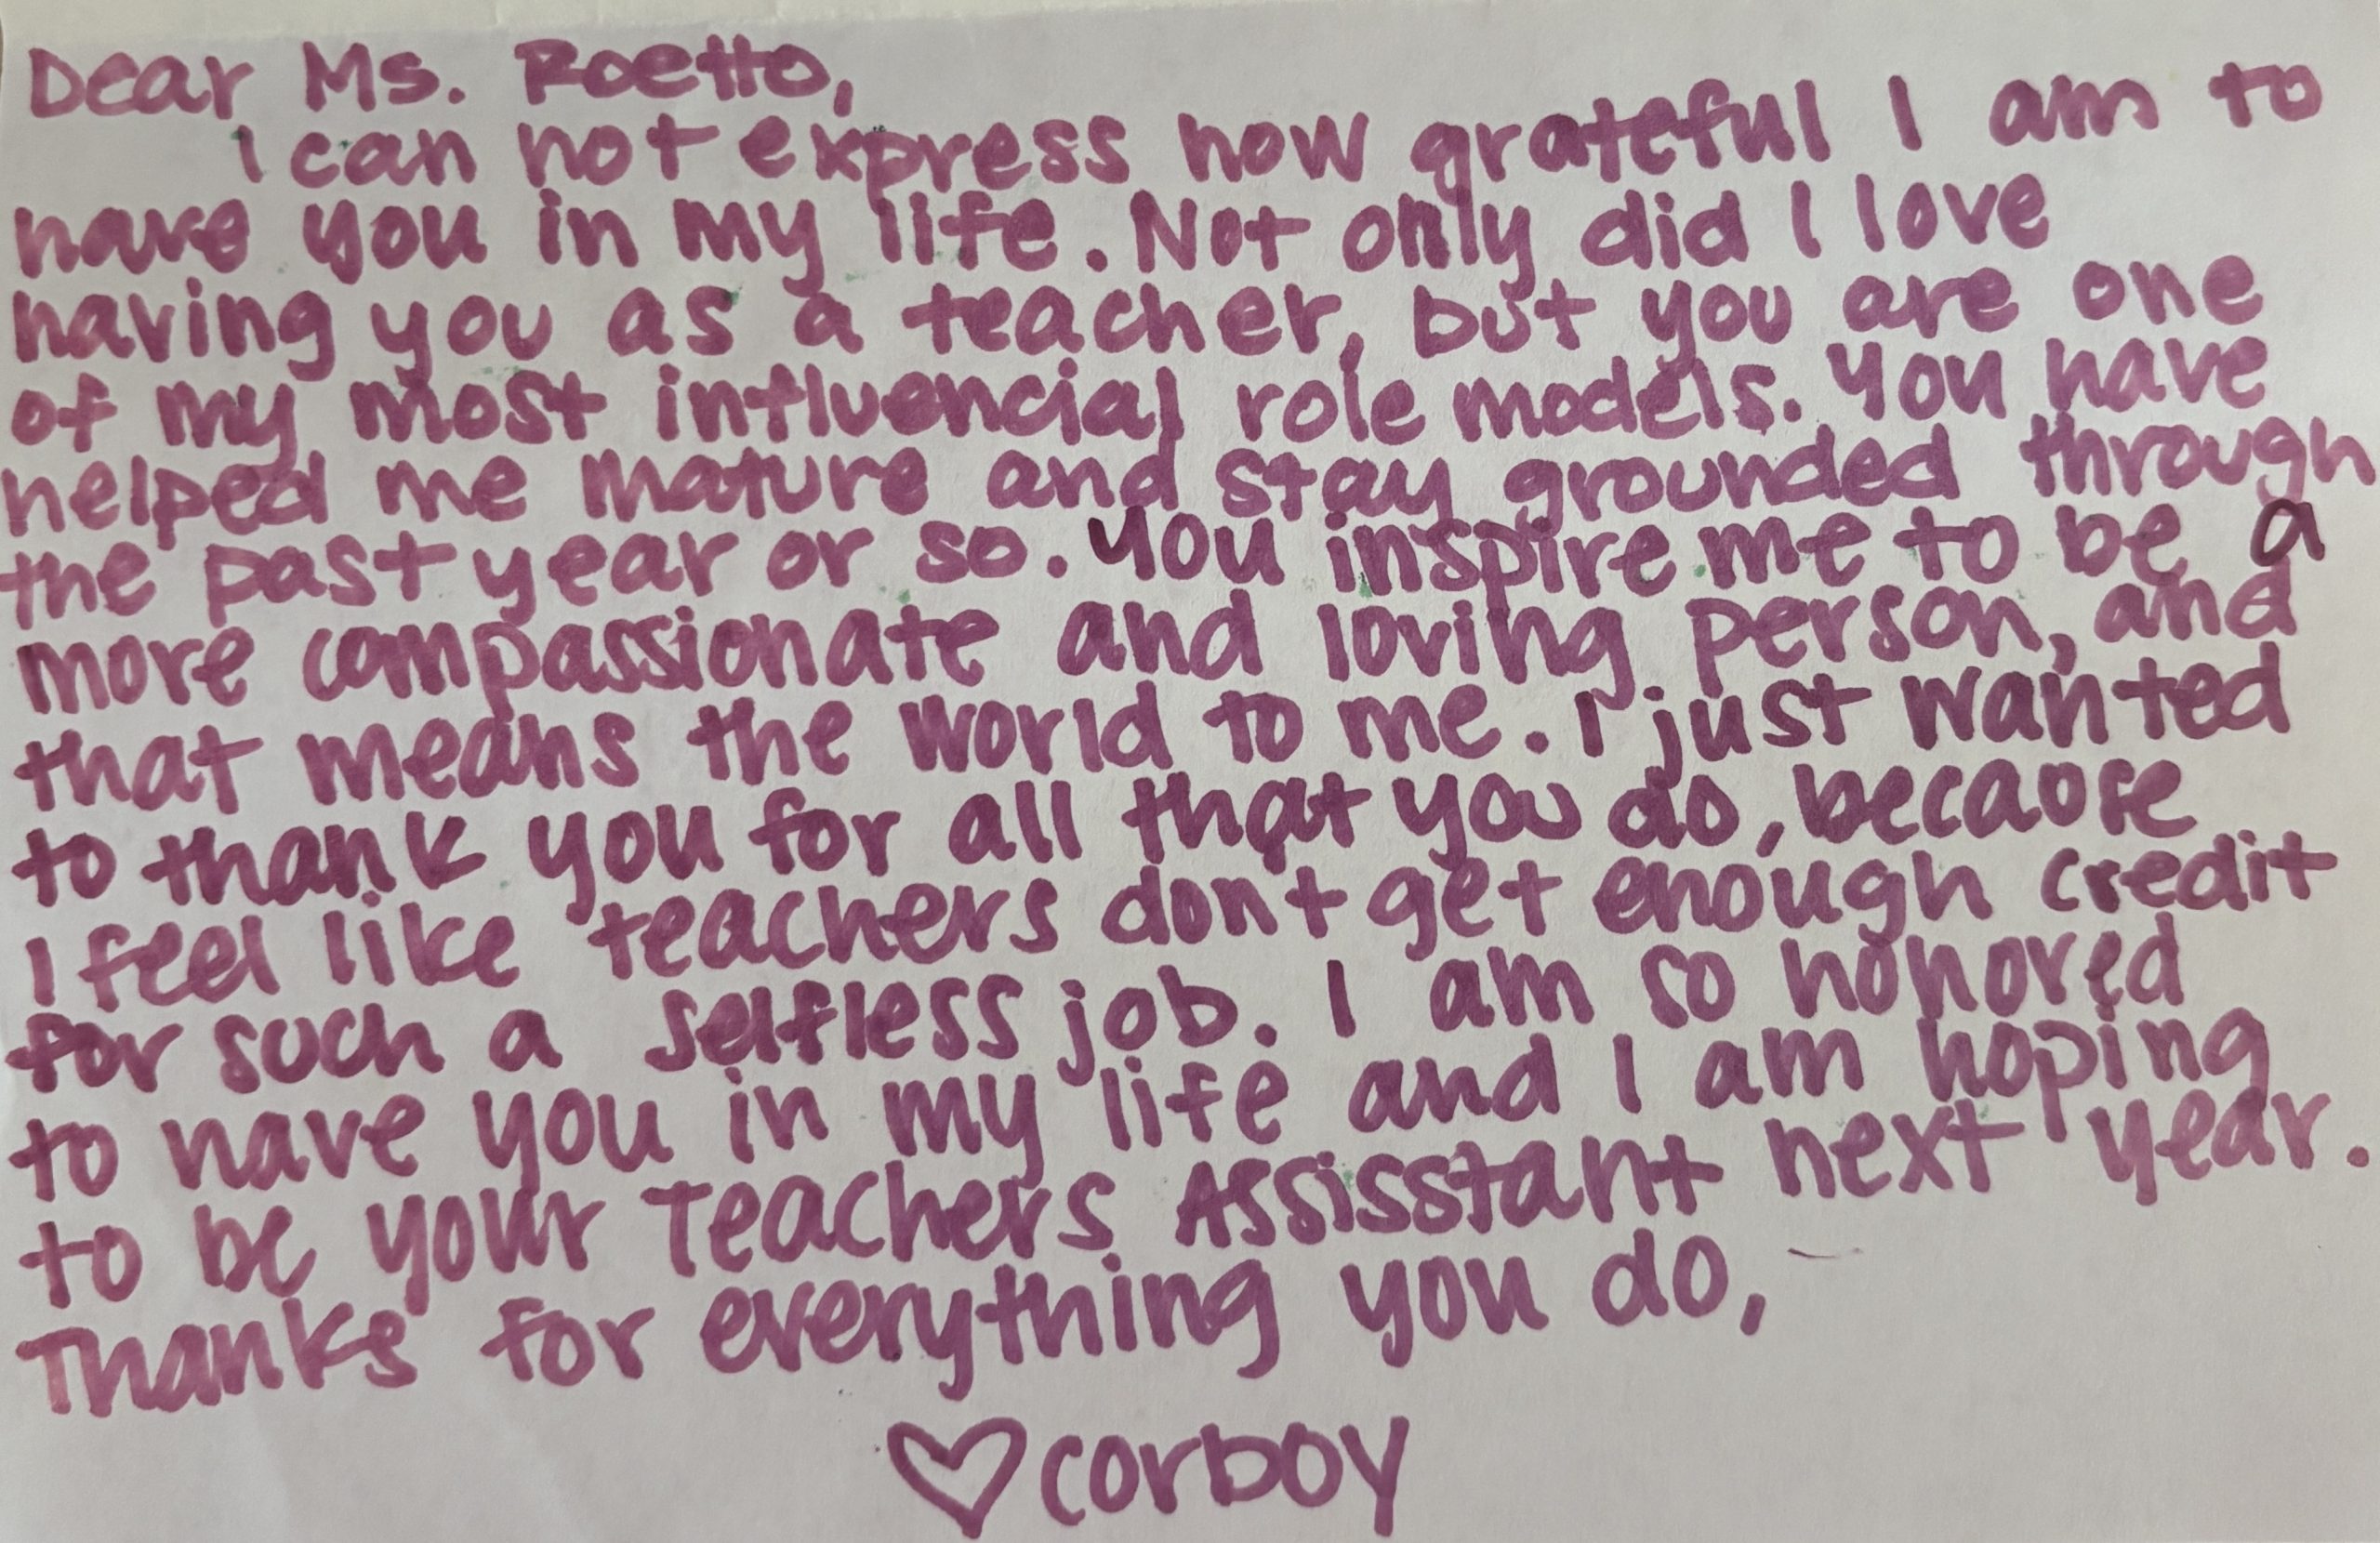 Dear Ms. Roetto,
I can not express how grateful I am to
have you in my life. Not only did I love
having you as a teacher, but you are one
of my most influencial role models. You have
helped me mature and stay grounded through
the past year or so. You inspire me to be a
more compassionate and loving person, and
that means the world to me. I just wanted
to thank you for all that you do, because
I feel like teachers don't get enough credit
for such a selfless job. I am so honored
to have you in my life and I am hoping
to be your Teachers Assisstant next year.
Thanks for everything you do,
♡corboy